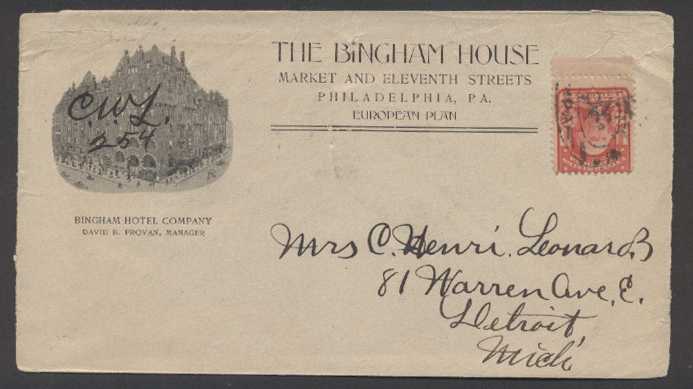 THE BINGHAM HOUSE
MARKET AND ELEVENTH STREETS
PHILADELPHIA, PA.
EUROPEAN PLAN
C.W.L.
254
BINGHAM HOTEL COMPANY
DAVID B. PROVAN, MANAGER
Mrs C. Henri. Leonard
81 Warren Ave, E.
Detroit,
Mich